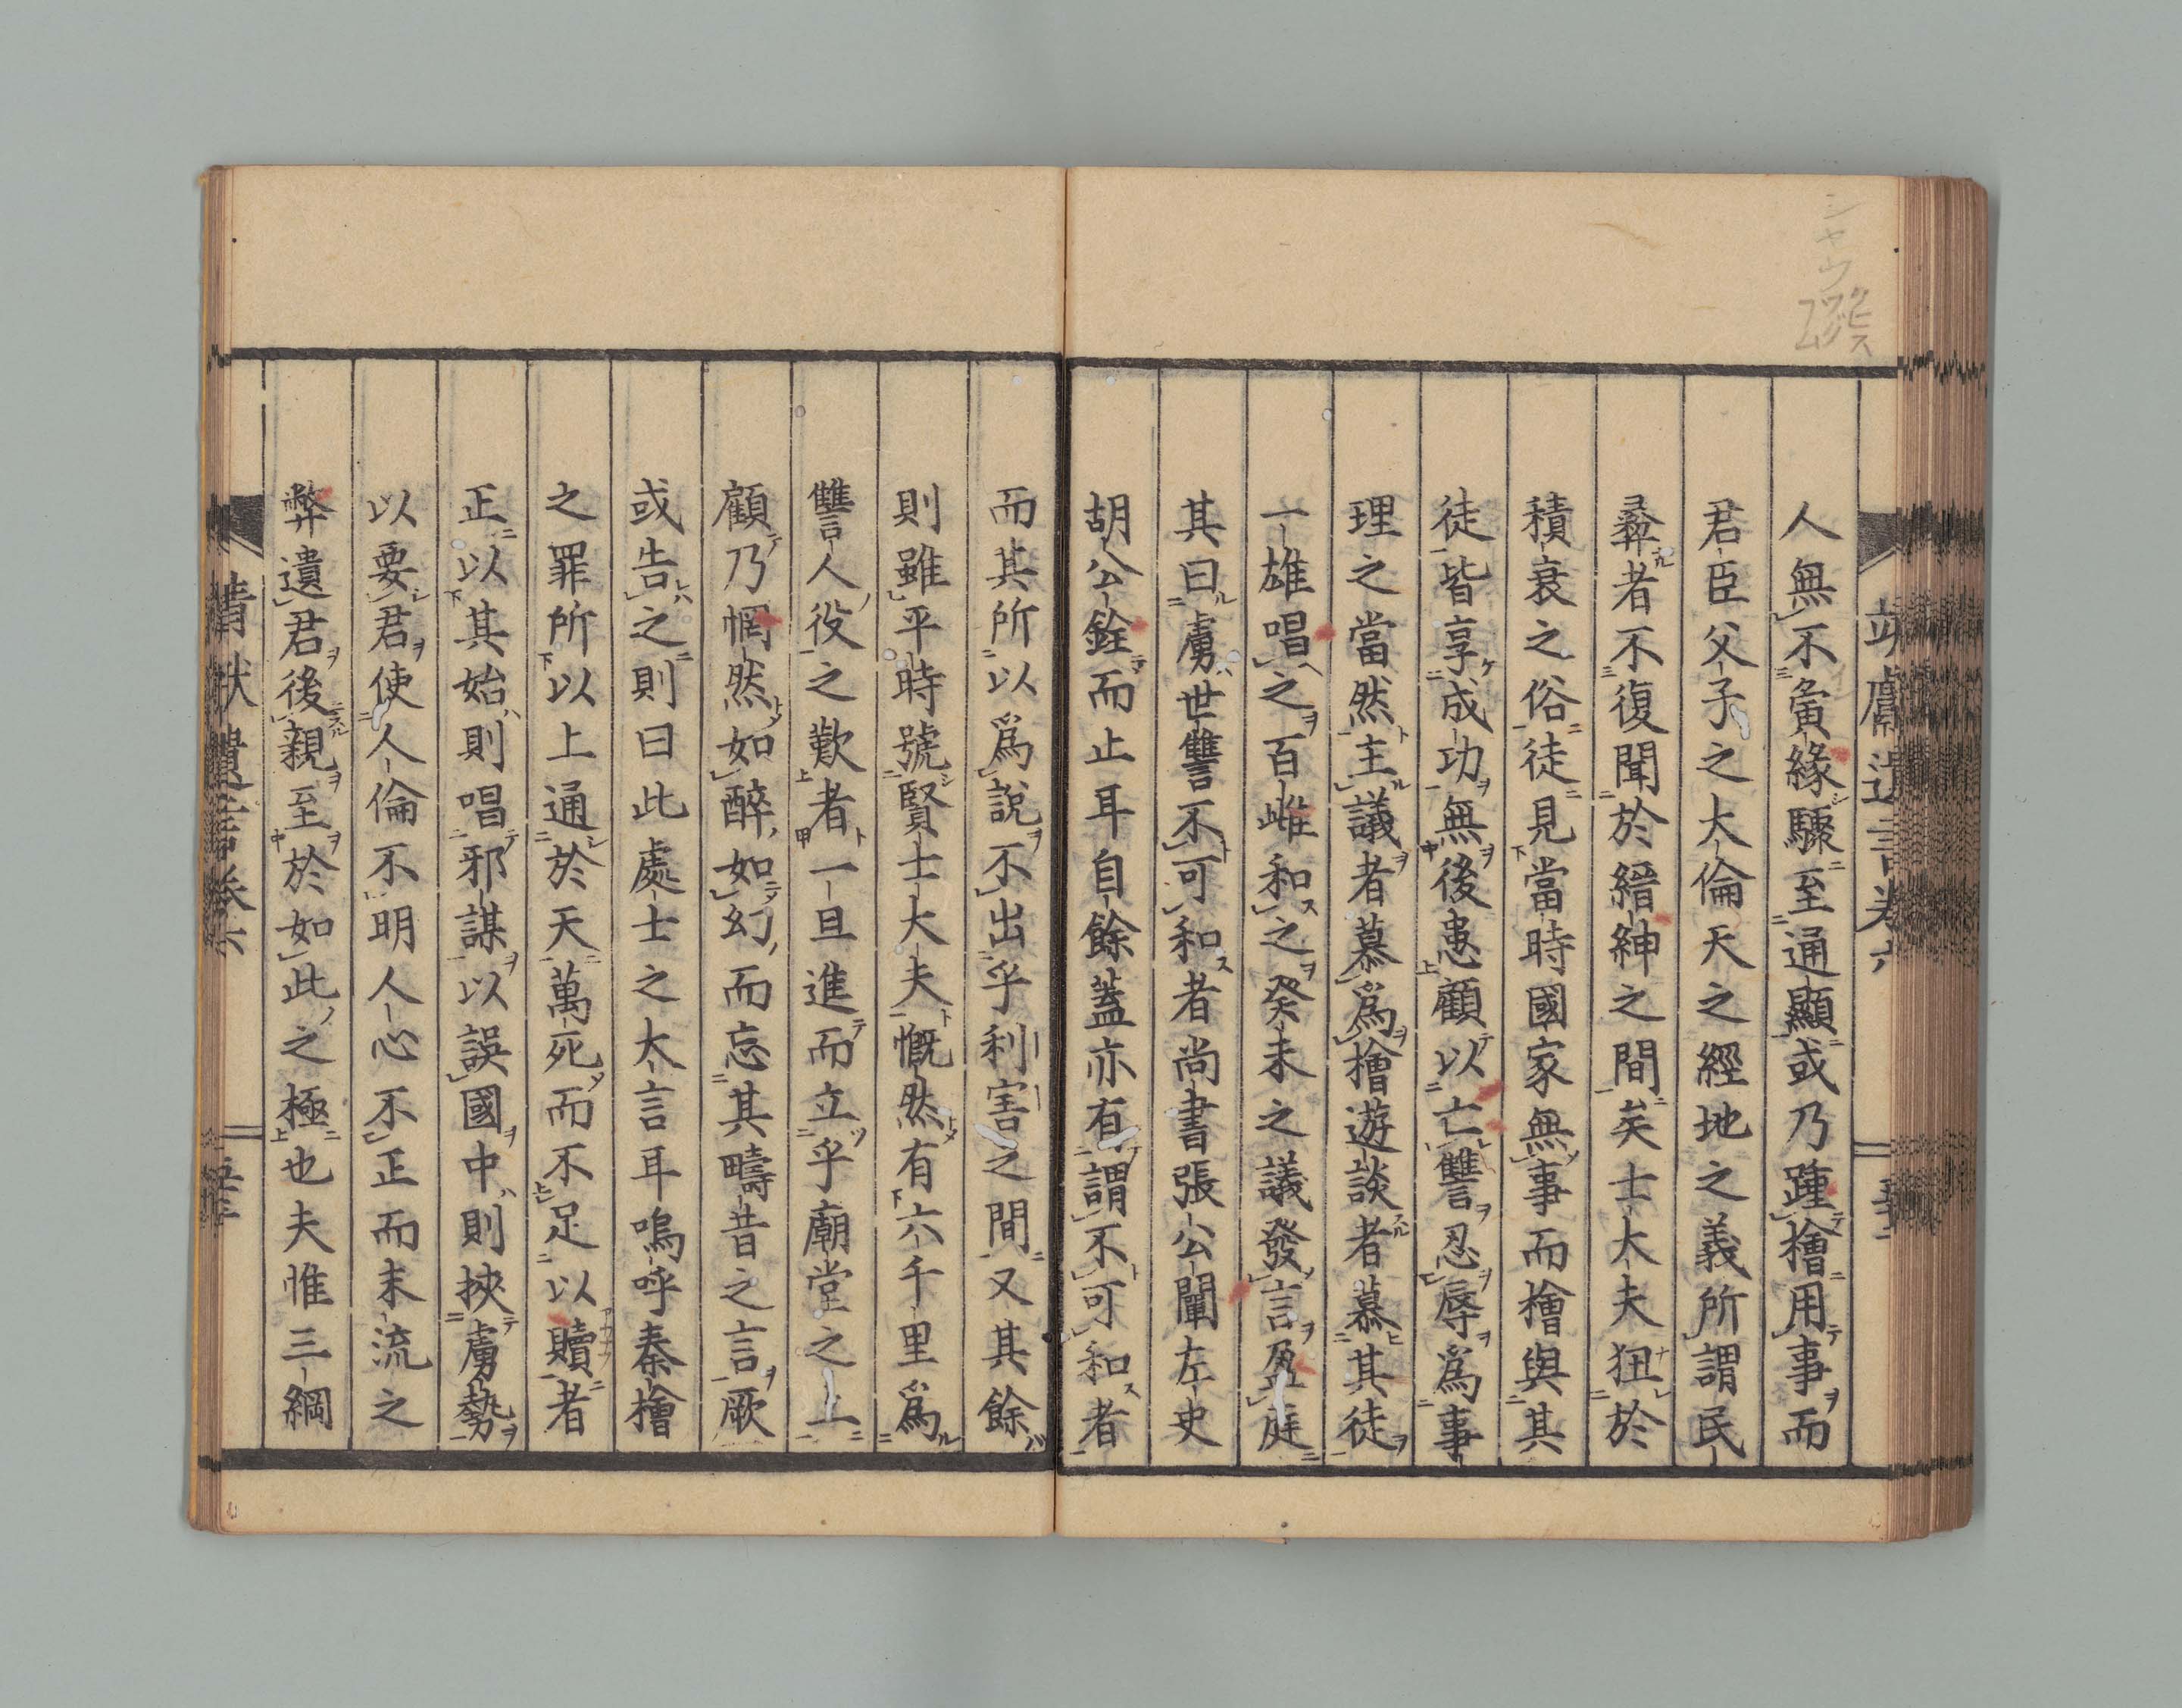 シヤウ
クビス
ワグ
フム
人無不夤緣驟至通顯或乃踵檜用事而
君臣父子之大倫天之經地之義所謂民
彝者不復聞於縉紳之間矣士大夫狃於
積衰之俗徒見當時國家無事而檜與其
徒皆享成功無後患顧以亡讐忍辱爲事
理之當然主議者慕爲檜遊談者慕其徒
一雄唱之百雌和之癸未之議發言盈庭
其曰虜世讐不可和者尚書張公闡左史
胡公銓而止耳自餘蓋亦有謂不可和者
而其所以爲說不出乎利害之間又其餘
則雖平時號賢士大夫慨然有六千里爲
讐人役之歎者一旦進而立乎廟堂之上
顧乃惘然如醉如幻而忘其疇昔之言厥
或告之則曰此處士之大言耳嗚呼秦檜
之罪所以上通於天萬死而不足以贖者
正以其始則唱邪謀以誤國中則挾虜勢
以要君使人倫不明人心不正而末流之
弊遺君後親至於如此之極也夫惟三綱
靖獻遺言卷六